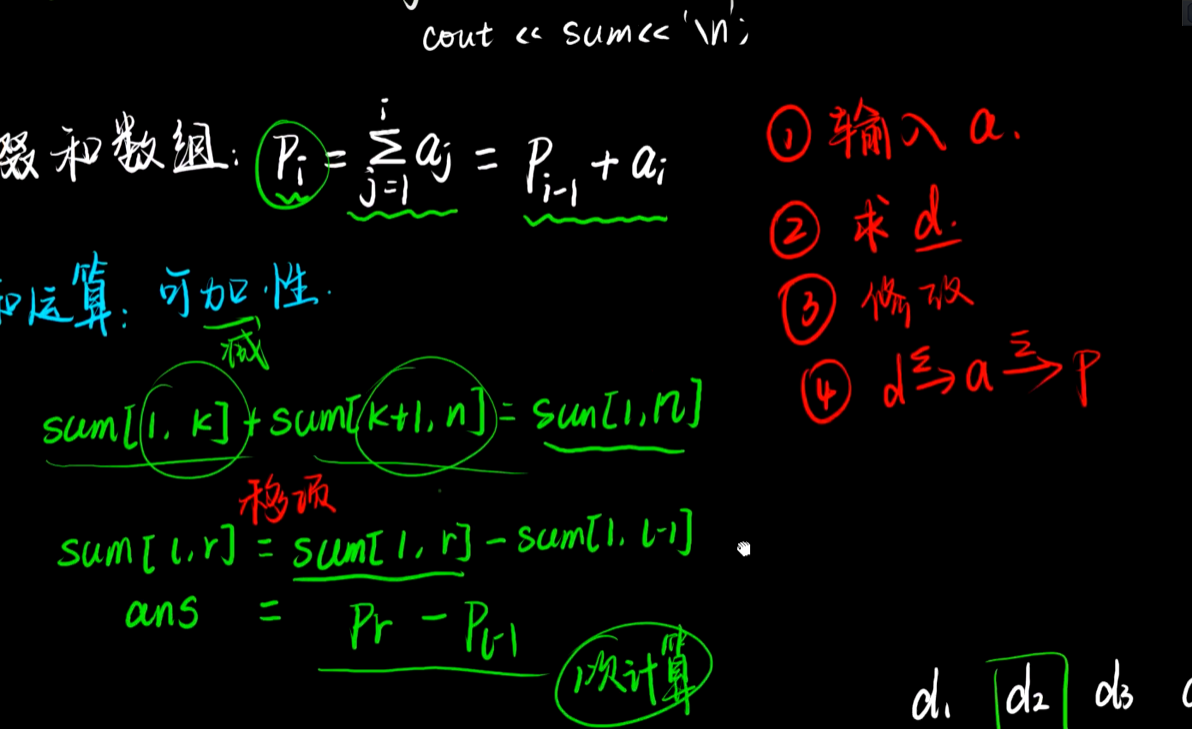 cout << sum<< '\n';
缀和数组: Pᵢ = ∑ᵢⱼ₌₁ aⱼ = Pᵢ₋₁ + aᵢ
和运算: 可加性.
减
sum[1, k] + sum[k+1, n] = sum[1, n]
移项
sum[l, r] = sum[1, r] - sum[1, l-1]
ans = Pr - Pₗ₋₁
1次计算
① 输入 a.
② 求 d.
③ 修改
④ d ∑→ a ∑→ P
d₁ d₂ d₃